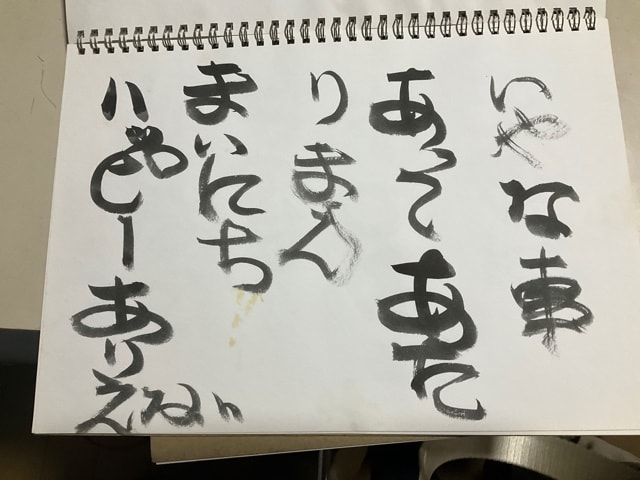 いやな事
あってあた
りまえ
まいにち
ハッピーありえない